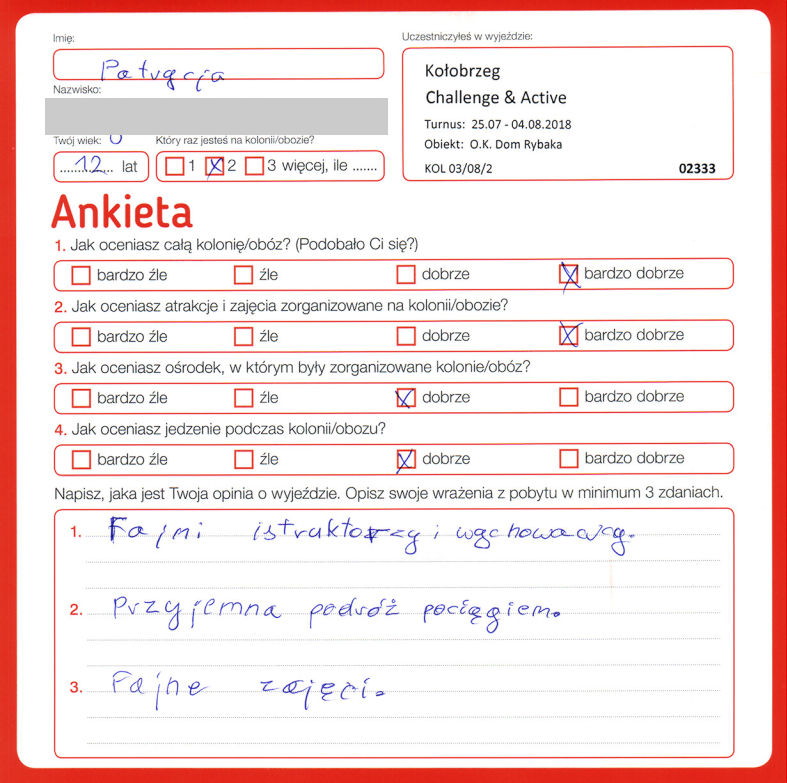 Imię:
Patrycja
Nazwisko:
Twój wiek:
12 lat
Który raz jesteś na kolonii/obozie?
1 2 3 więcej, ile .......
Uczestniczyłeś w wyjeździe:
Kołobrzeg
Challenge & Active
Turnus: 25.07 - 04.08.2018
Obiekt: O.K. Dom Rybaka
KOL 03/08/2 02333
Ankieta
1. Jak oceniasz całą kolonię/obóz? (Podobało Ci się?)
bardzo źle źle dobrze bardzo dobrze
2. Jak oceniasz atrakcje i zajęcia zorganizowane na kolonii/obozie?
bardzo źle źle dobrze bardzo dobrze
3. Jak oceniasz ośrodek, w którym były zorganizowane kolonie/obóz?
bardzo źle źle dobrze bardzo dobrze
4. Jak oceniasz jedzenie podczas kolonii/obozu?
bardzo źle źle dobrze bardzo dobrze
Napisz, jaka jest Twoja opinia o wyjeździe. Opisz swoje wrażenia z pobytu w minimum 3 zdaniach.
1. Fajni istruktorzy i wychowawcy.
2. Przyjemna podróż pociągiem.
3. Fajne zajęci.